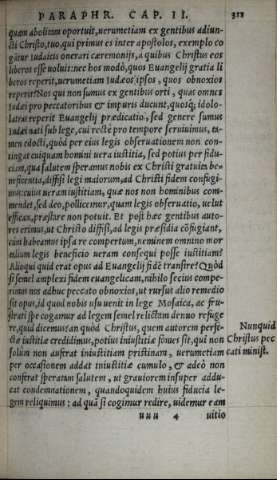 PARAPHR. CAP. II. 312
quam abolitum oportuit, uerumetiam ex gentibus adiun-
cti Christo, tuo, qui primus es inter apostolos, exemplo co
gitur Iudaicis onerari cæremonijs, a quibus Christus eos
liberos esse uoluit: nec hos modò, quos Euangelij gratia li
beros reperit, uerumetiam Iudæos ipsos, quos obnoxios
reperit? Nos qui non sumus ex gentibus orti, quas omnes
Iudæi pro peccatoribus & impuris ducunt, quósq; idolo-
latras reperit Euangelij prædicatio, sed genere sumus
Iudæi nati sub lege, cui rectè pro tempore seruiuimus, ta-
men edocti, quòd per eius legis obseruationem non con-
tingat cuiquam homini uera iustitia, sed potius per fidu-
ciam, qua salutem speramus nobis ex Christi gratuita be-
neficentia, diffisi legi maiorum, ad Christi fidem confugi-
mus: cuius ueram iustitiam, quæ nos non hominibus com-
mendet, sed deo, pollicemur, quam legis obseruatio, uelut
efficax, præstare non potuit. Et post hæc gentibus auto-
res erimus, ut Christo diffisi, ad legis præsidia cõfugiant,
cùm habeamus ipsa re compertum, neminem omnino mor
talium legis beneficio ueram consequi posse iustitiam?
Alioqui quid erat opus ad Euangelij fidẽ transire? Quòd
si semel amplexi fidem euangelicam, nihilo secius compe-
riamur nos adhuc peccato obnoxios, ut rursus alio remedio
sit opus, id quod nobis usu uenit in lege Mosaica, ac fru-
strati spe cogamur ad legem semel relictam denuo refuge
re, quid dicemus? an quòd Christus, quem autorem perfe-
ctæ iustitiæ credidimus, potius iniustitiæ fouet sit, qui non
solùm non auferat iniustitiam pristinam, uerumetiam
per occasionem addat iniustitiæ cumulo, & adeò non
conferat speratam salutem, ut grauiorem insuper addu-
cat condemnationem, quandoquidem huius fiducia le-
gem reliquimus: ad quã si cogimur redire, uidemur eam
uuu 4 uitio
Nunquid
Christus pec
cati minist.